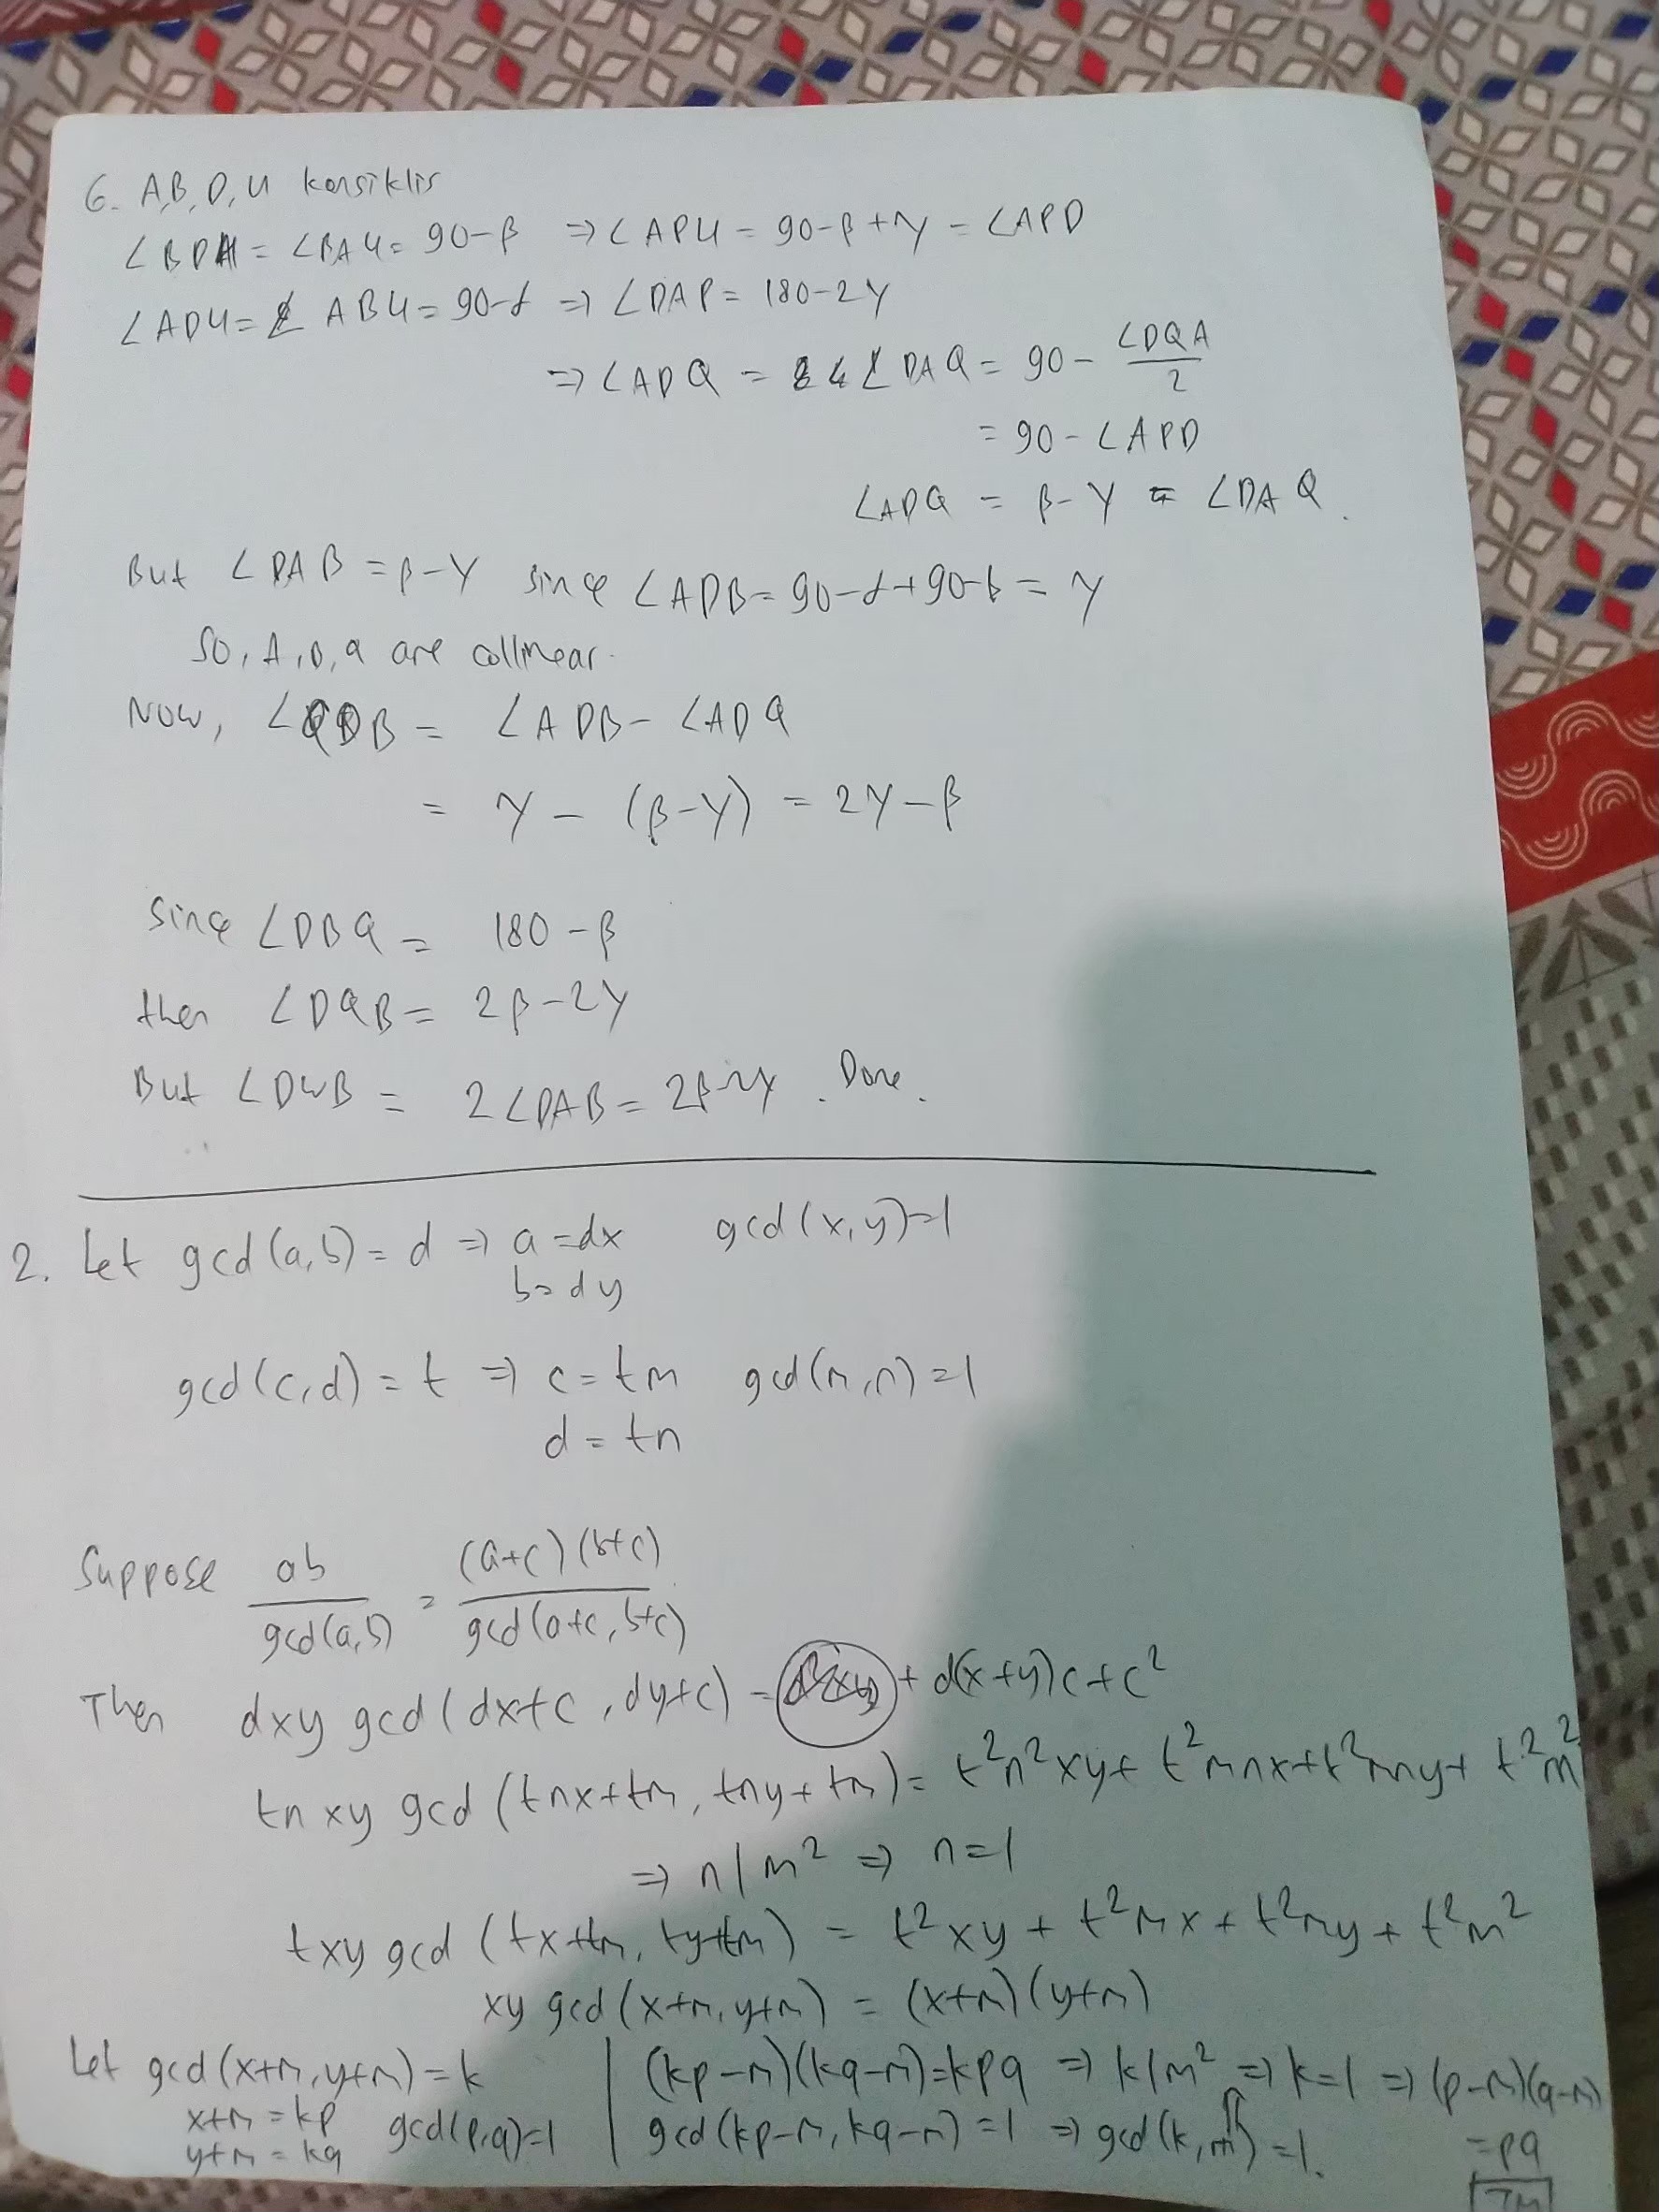 6. A,B,D,H konsiklis
∠BDH = ∠BAH = 90-β ⇒ ∠APH = 90-β+γ = ∠APD
∠ADH = ∠ABH = 90-α ⇒ ∠DAP = 180-2γ
⇒ ∠ADQ = ∠DAQ = 90 - ∠DQA/2
= 90 - ∠APD
∠ADQ = β-γ = ∠DAQ.
But ∠DAB = β-γ since ∠ADB = 90-α+90-β = γ
So, A,B,Q are collinear.
Now, ∠QDB = ∠ADB - ∠ADQ
= γ - (β-γ) = 2γ-β
Since ∠DBQ = 180-β
then ∠DQB = 2β-2γ
But ∠DWB = 2∠DAB = 2β-2γ. Done.
2. Let gcd(a,b) = d ⇒ a=dx gcd(x,y)=1
b=dy
gcd(c,d) = t ⇒ c=tm gcd(m,n)=1
d=tn
Suppose ab/gcd(a,b) = (a+c)(b+c)/gcd(a+c,b+c)
Then dxy gcd(dx+c, dy+c) = d²xy + d(x+y)c+c²
tnxy gcd(tnx+tm, tny+tm) = t²n²xy + t²mnx + t²mny + t²m²
⇒ n|m² ⇒ n=1
txy gcd(tx+tm, ty+tm) = t²xy + t²mx + t²my + t²m²
xy gcd(x+m, y+m) = (x+m)(y+m)
Let gcd(x+m, y+m) = k | (kp-m)(kq-m)=kpq ⇒ k|m² ⇒ k=1 ⇒ (p-m)(q-m)
x+m = kp gcd(p,q)=1 | gcd(kp-m, kq-m)=1 ⇒ gcd(k,m)=1.
y+m = kq =pq